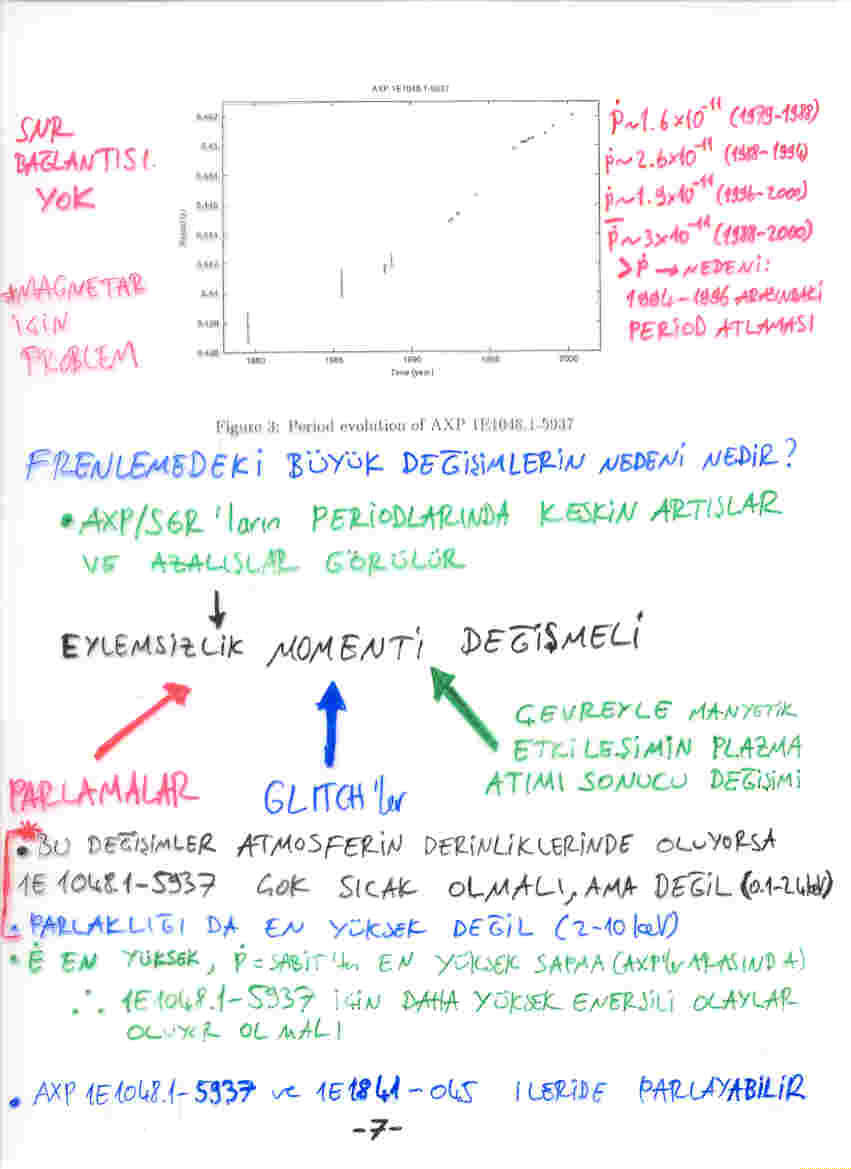 AXP 1E1048.1-5937
SNR
BAĞLANTISI
YOK
*MAGNETAR
İÇİN
PROBLEM
Period (s)
1980
1985
1990
1995
2000
Time (year)
Ṗ~1.6x10⁻¹¹ (1979-1988)
Ṗ~2.6x10⁻¹¹ (1988-1994)
Ṗ~1.9x10⁻¹¹ (1996-2000)
Ṗ~3x10⁻¹¹ (1988-2000)
>Ṗ → NEDENİ:
1994-1996 ARASINDAKİ
PERİOD ATLAMASI
Figure 3: Period evolution of AXP 1E1048.1-5937
FRENLEMEDEKİ BÜYÜK DEĞİŞİMLERİN NEDENİ NEDİR?
• AXP/SGR'ların PERİODLARINDA KESKİN ARTIŞLAR
VE AZALIŞLAR GÖRÜLÜR
↓
EYLEMSİZLİK MOMENTİ DEĞİŞMELİ
ÇEVREYLE MANYETİK
ETKİLEŞİMİN PLAZMA
ATIMI SONUCU DEĞİŞİMİ
PARLAMALAR
GLITCH'ler
• BU DEĞİŞİMLER ATMOSFERİN DERİNLİKLERİNDE OLUYORSA
1E 1048.1-5937 ÇOK SICAK OLMALI, AMA DEĞİL (0.1-2.4 keV)
• PARLAKLIĞI DA EN YÜKSEK DEĞİL (2-10 keV)
• Ė EN YÜKSEK, Ṗ=SABİT'ten EN YÜKSEK SAPMA (AXP'ler ARASINDA)
∴ 1E1048.1-5937 İÇİN DAHA YÜKSEK ENERJİLİ OLAYLAR
OLUYOR OLMALI
• AXP 1E1048.1-5937 ve 1E1841-045 İLERİDE PARLAYABİLİR
-7-